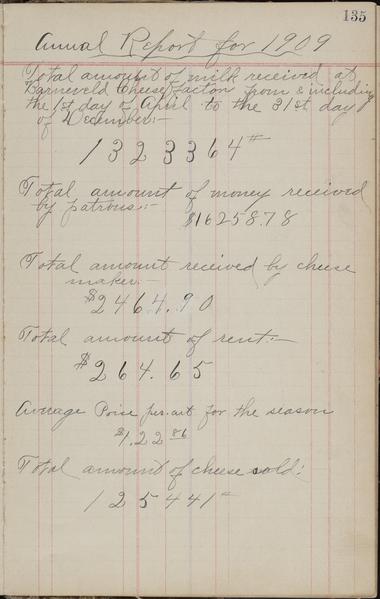 135
Annual Report for 1909
Total amount of milk received at
Barneveld Cheese Factory from & including
the 1st day of April to the 31st day
of December:-
1323364#
Total amount of money received
by patrons:-
$16258.78
Total amount received by cheese
maker:-
$2464.90
Total amount of rent:-
$264.65
Average Price per. cwt for the season
$1.22 86
Total amount of cheese sold:
125441#